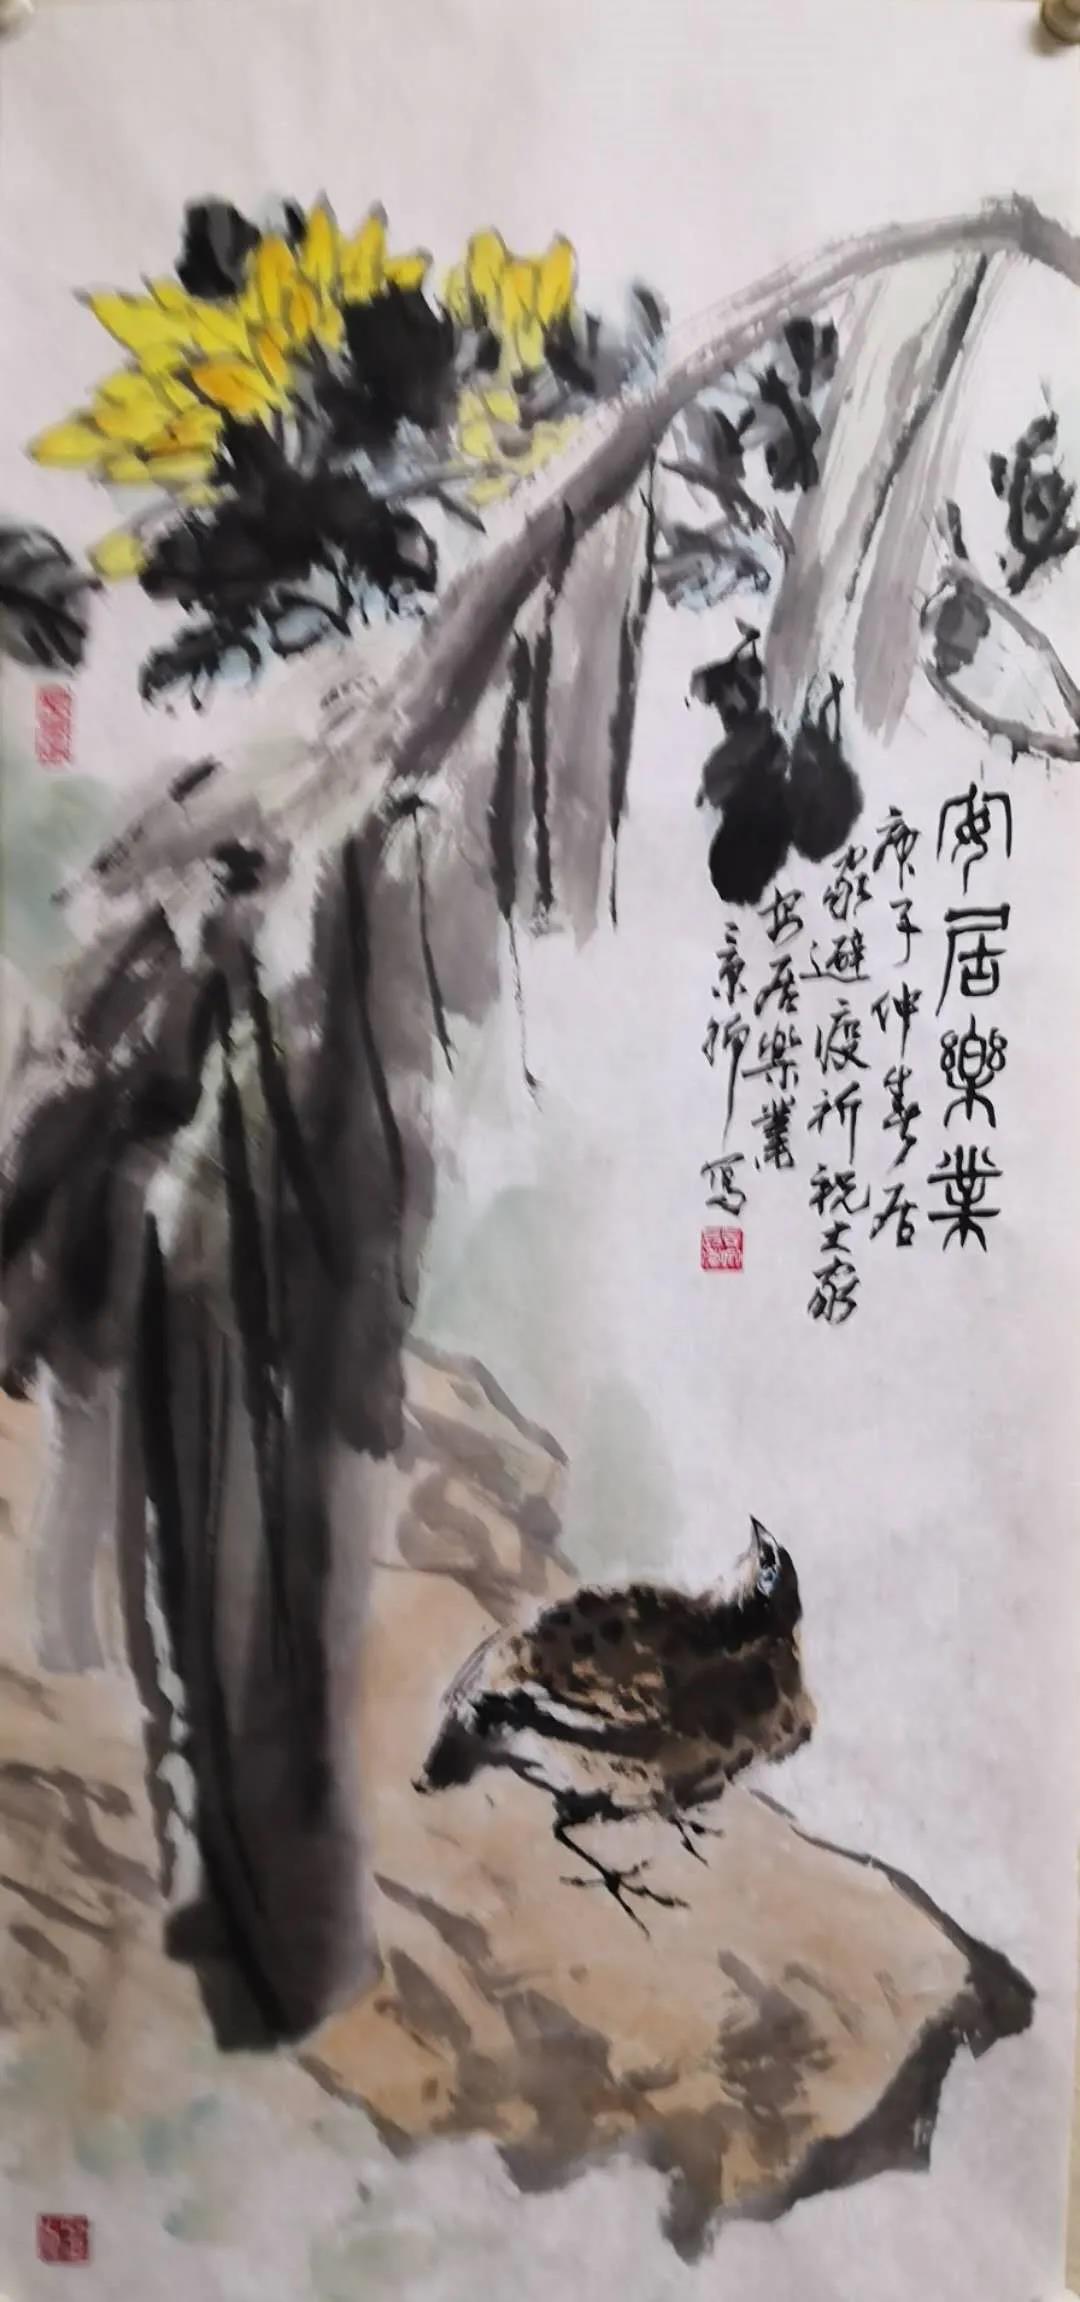 安居樂業
庚子仲春居
家避疫祈祝大家
安居樂業
寫